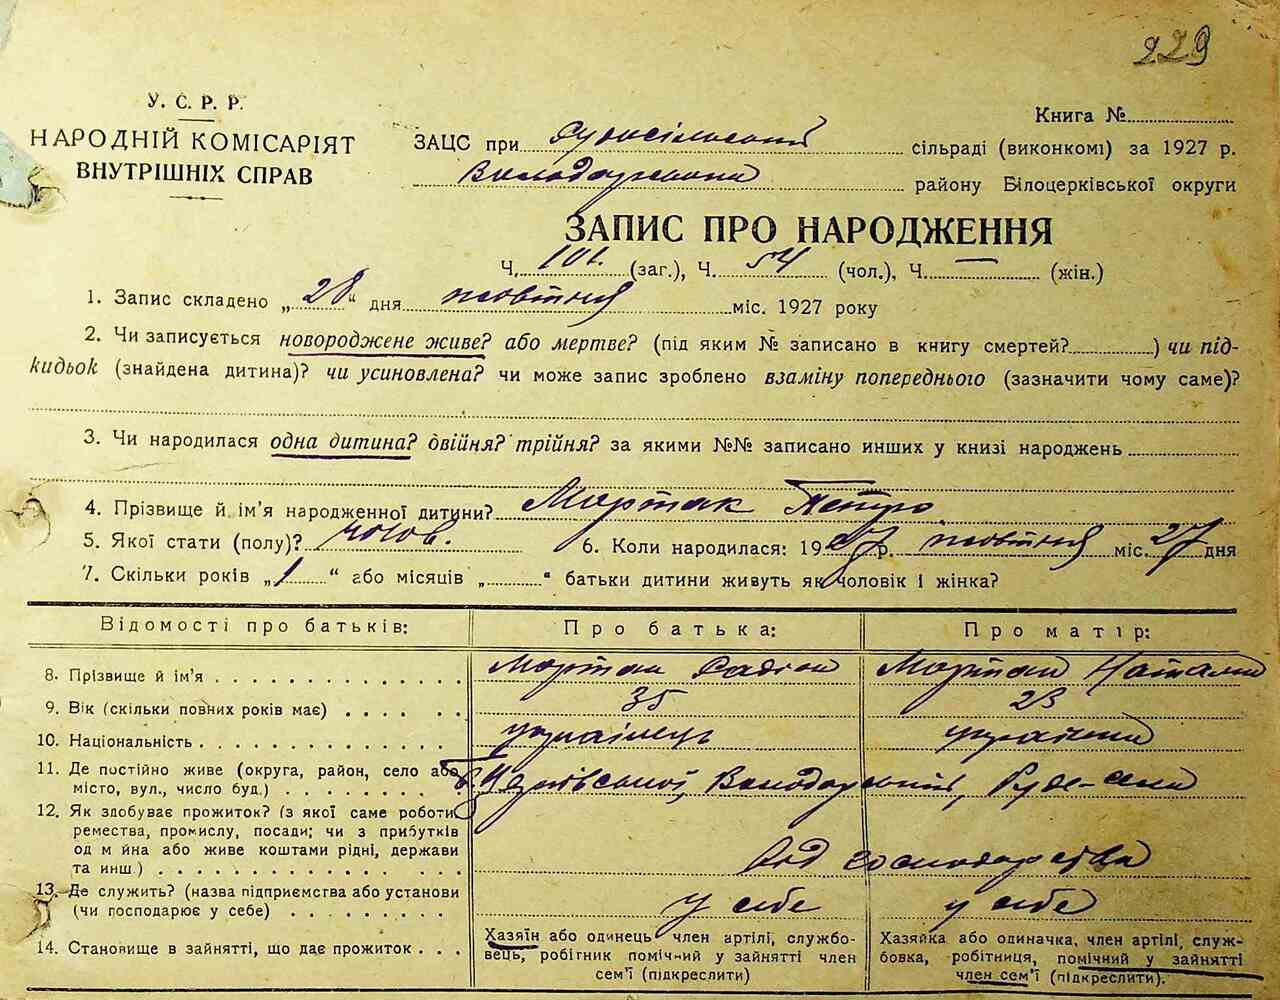 229
У. С. Р. Р.
НАРОДНІЙ КОМІСАРІЯТ
ВНУТРІШНІХ СПРАВ
Книга №
ЗАЦС при Рудосільський сільраді (виконкомі) за 1927 р.
Володарського району Білоцерківської округи
ЗАПИС ПРО НАРОДЖЕННЯ
Ч. 101. (заг.), Ч. 54 (чол.), Ч. — (жін.)
1. Запис складено „28" дня жовтня міс. 1927 року
2. Чи записується новороджене живе? або мертве? (під яким № записано в книгу смертей?) чи під-
кидьок (знайдена дитина)? чи усиновлена? чи може запис зроблено взаміну попереднього (зазначити чому саме)?
3. Чи народилася одна дитина? двійня? трійня? за якими №№ записано инших у книзі народжень
4. Прізвище й ім'я народженної дитини? Мортак Петро
5. Якої стати (полу)? чолов. 6. Коли народилася: 1927 р. жовтня міс. 27 дня
7. Скільки років „1" або місяців „ " батьки дитини живуть як чоловік і жінка?
Відомості про батьків: Про батька: Про матір:
8. Прізвище й ім'я Мортак Мортак
9. Вік (скільки повних років має) 35 23
10. Національність українець українка
11. Де постійно живе (округа, район, село або
місто, вул., число буд.) Б. Церківської, Володарський, Руде-село
12. Як здобуває прожиток? (з якої саме роботи,
ремества, промислу, посади; чи з прибутків
од м йна або живе коштами рідні, держави
та инш.) господарства
13. Де служить? (назва підприємства або установи
(чи господарює у себе) у себе у себе
14. Становище в зайнятті, що дає прожиток
Хазяїн або одинець член артілі, службо-
вець, робігник помічний у зайнятті член
сем'ї (підкреслити)
Хазяйка або одиначка, член артілі, служ-
бовка, робітниця, помічний у зайнятті
член сем'ї (підкреслити).